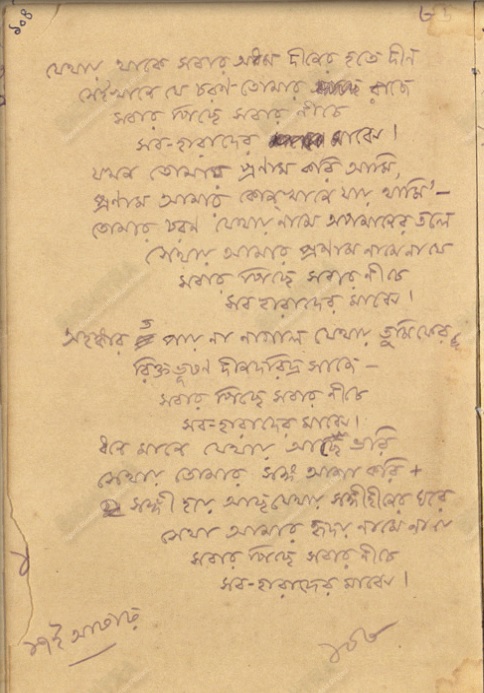 ১০৪
যেথায় থাকে সবার অধম দীনের হতে দীন
সেইখানে যে চরণ তোমার রাজে
সবার পিছে সবার নীচে
সব-হারাদের মাঝে।
যখন তোমায় প্রণাম করি আমি,
প্রণাম আমার কোনখানে যায় থামি'—
তোমার চরণ যেথায় নামে অপমানের তলে
সেথায় আমার প্রণাম নামে না যে
সবার পিছে সবার নীচে
সব হারাদের মাঝে।
অহঙ্কার ত পায় না নাগাল যেথায় তুমি ফের
রিক্তভূষণ দীনদরিদ্র সাজে—
সবার পিছে সবার নীচে
সব-হারাদের মাঝে।
ধনে মানে যেথায় আছে ভরি
সেথায় তোমার সঙ্গ আশা করি
সঙ্গী হয়ে আছ যেথায় সঙ্গীহীনের ঘরে
সেথা আমার হৃদয় নামে না যে
সবার পিছে সবার নীচে
সব-হারাদের মাঝে।
আষাঢ়